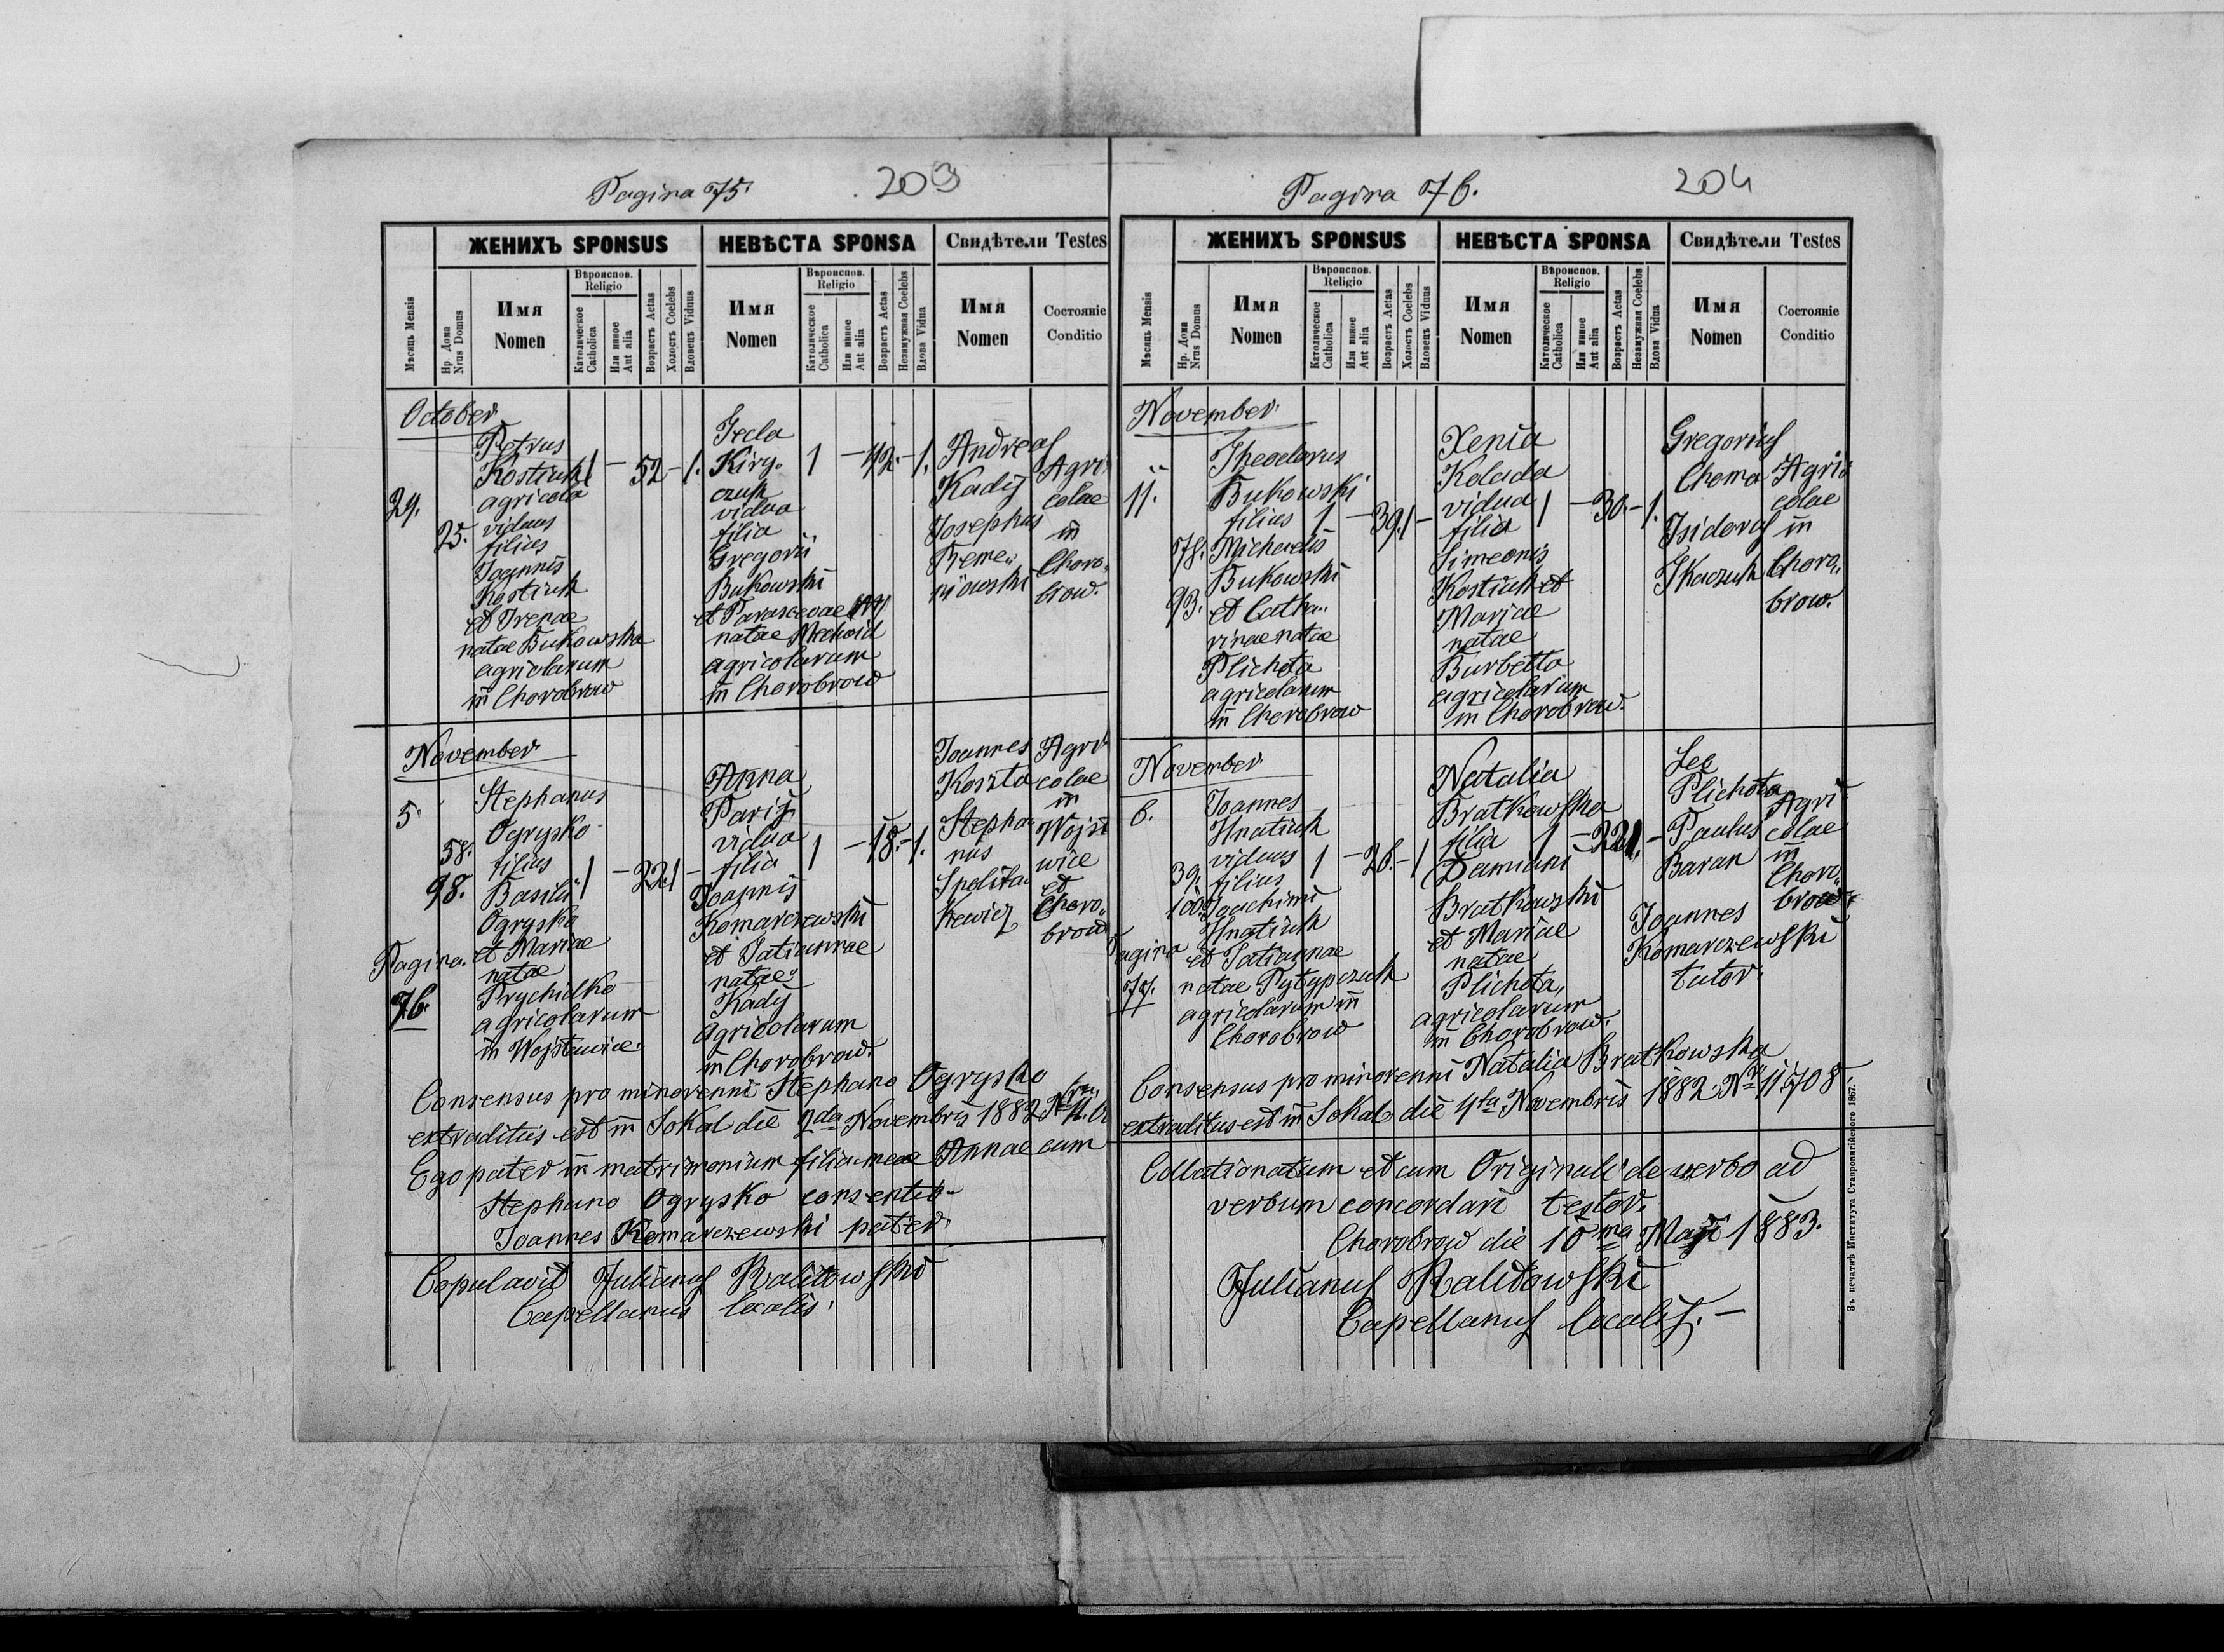 Pagina 75.
203
ЖЕНИХЪ SPONSUS
НЕВѢСТА SPONSA
Свидѣтели Testes
Мѣсяць Mensis
Нр. Дома
Nrus Domus
Имя
Nomen
Вѣроиспов.
Religio
Католическое
Catholica
Или иное
Aut alia
Возрастъ Aetas
Холостъ Coelebs
Вдовецъ Viduus
Имя
Nomen
Вѣроиспов.
Religio
Католическое
Catholica
Или иное
Aut alia
Возрастъ Aetas
Незамужная Coelebs
Вдова Vidua
Имя
Nomen
Состояніе
Conditio
October
29.
25.
Petrus
Kostiuk
agricola
viduus
filius
Joannis
Kostiuk
et Irenae
natae Bukowska
agricolarum
in Chorobrow
1 — 52 — 1.
Tecla
Kiry„
czuk
vidua
filia
Gregorii
Bukowski
et Parascevae
natae
agricolarum
in Chorobrow
1 — 42. — 1.
Andreas
Kadij
Josephus
Agri„
colae
in
Choro„
brow.
November
5.
58.
98.
Pagina.
76.
Stephanus
Ogrysko
filius
Basilii
Ogrysko
et Mariae
natae
Prychidko
agricolarum
in Wojslawice
1 — 22 1 —
Anna
Parij
vidua
filia
Joannis
Komarczewski
et Tatiannae
natae
Kadij
agricolarum
in Chorobrow.
1 — 18. — 1.
Joannes
Koszta
Stepha„
nus
Spolita„
kewicz
Agri„
colae
in
Wojsl
wice
et
Choro„
brow
Consensus pro minorenni Stephano Ogrysko
extraditus est in Sokal die 2da Novembris 1882
Ego pater in matrimonium filiae meae Annae cum
Stephano Ogrysko consentio
Joannes Komarczewski pater.
Copulavit Julianus Kalitowski
Capellanus localis.
Pagina 76.
204
ЖЕНИХЪ SPONSUS
НЕВѢСТА SPONSA
Свидѣтели Testes
Мѣсяць Mensis
Нр. Дома
Nrus Domus
Имя
Nomen
Вѣроиспов.
Religio
Католическое
Catholica
Или иное
Aut alia
Возрастъ Aetas
Холостъ Coelebs
Вдовецъ Viduus
Имя
Nomen
Вѣроиспов.
Religio
Католическое
Catholica
Или иное
Aut alia
Возрастъ Aetas
Незамужная Coelebs
Вдова Vidua
Имя
Nomen
Состояніе
Conditio
November
11.
78.
93.
Theodorus
Bukowski
filius
Michaelis
Bukowski
et Catha„
rinae natae
Plichota
agricolarum
in Chorobrow
1 — 39. 1 —
Xenia
Kolada
vidua
filia
Simeonis
Kostiuk et
Mariae
natae
Burbetto
agricolarum
in Chorobrow.
1 — 30. — 1.
Gregorius
Choma
Isidorus
Tkaczuk
Agri„
colae
in
Choro„
brow.
November
6.
39.
100.
Pagina
77.
Joannes
Hnatiuk
viduus
filius
Joachimi
Hnatiuk
et Tatiannae
natae Pytypczuk
agricolarum in
Chorobrow
1 — 26. — 1
Natalia
Bratkowska
filia
Damiani
Bratkowski
et Mariae
natae
Plichota,
agricolarum
in Chorobrow.
1 — 22 1. —
Leo
Plichota
Paulus
Baran
Joannes
Komarczewski
tutor.
Agri
colae
in
Choro„
brow.
Consensus pro minorenni Natalia Bratkowska
extraditus est in Sokal die 4ta Novembris 1882 Nro 11708
Collationatum et cum Originali de verbo ad
verbum concordari testor.
Chorobrow die 10ma Maji 1883.
Julianus Kalitowski
Capellanus localis. —
Въ печатнѣ Института Ставропигійского 1867.